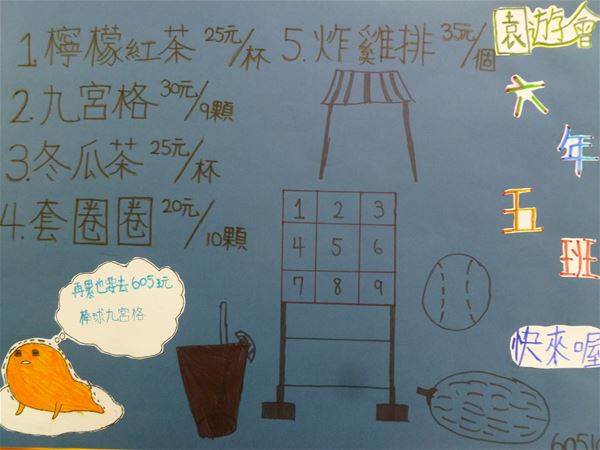 1.檸檬紅茶25元/杯
2.九宮格30元/9顆
3.冬瓜茶25元/杯
4.套圈圈20元/10顆
5.炸雞排35元/個
園遊會
六年五班
快來喔
1 2 3
4 5 6
7 8 9
再累也要去605玩
棒球九宮格